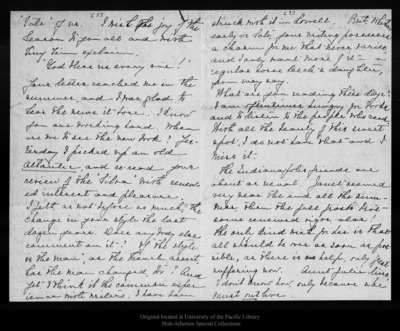 tale of us. I wish the joy of the
season to you all and with
tiny Tim exclaim,
"God bless us every one!"
Your letter reached me in the
summer, and I was glad to
hear the news it bore. I know
you are working hard. When
are we to see the new book? Yes-
terday I picked up an old
Atlantic and re-read your
review of the Silva with renew-
ed interest and pleasure.
I felt, as not before so much, the
change in your style the last
dozen years. Does any body else
comment on it? If "the style
is the man," as the French assert,
has the man changed, too? And
yet, I think it the common exper
ience with writers. I have been
struck with it in Lowell. But, whether
early or late, your writing possesses
a charm for me that never varies
and I only want more of it - a
regular horse leech's daughter,
you may say.
What are you reading these days?
I am oftentimes hungry for books
and to listen to the people who read.
With all the beauty of this sweet
spot, I do not have that and I
miss it.
The Indianapolis friends are
about as usual. Janet seemed
very near the end all the sum-
mer. Then the fall frosts brought
some renewed vigor, alas!
the only kind wish for her is that
all should be over as soon as pos-
sible, as there is no help, only great
suffering now. Aunt Julia lives,
I don't know how, only because she
must not live.
Original located at University of the Pacific Library
Holt-Atherton Special Collections